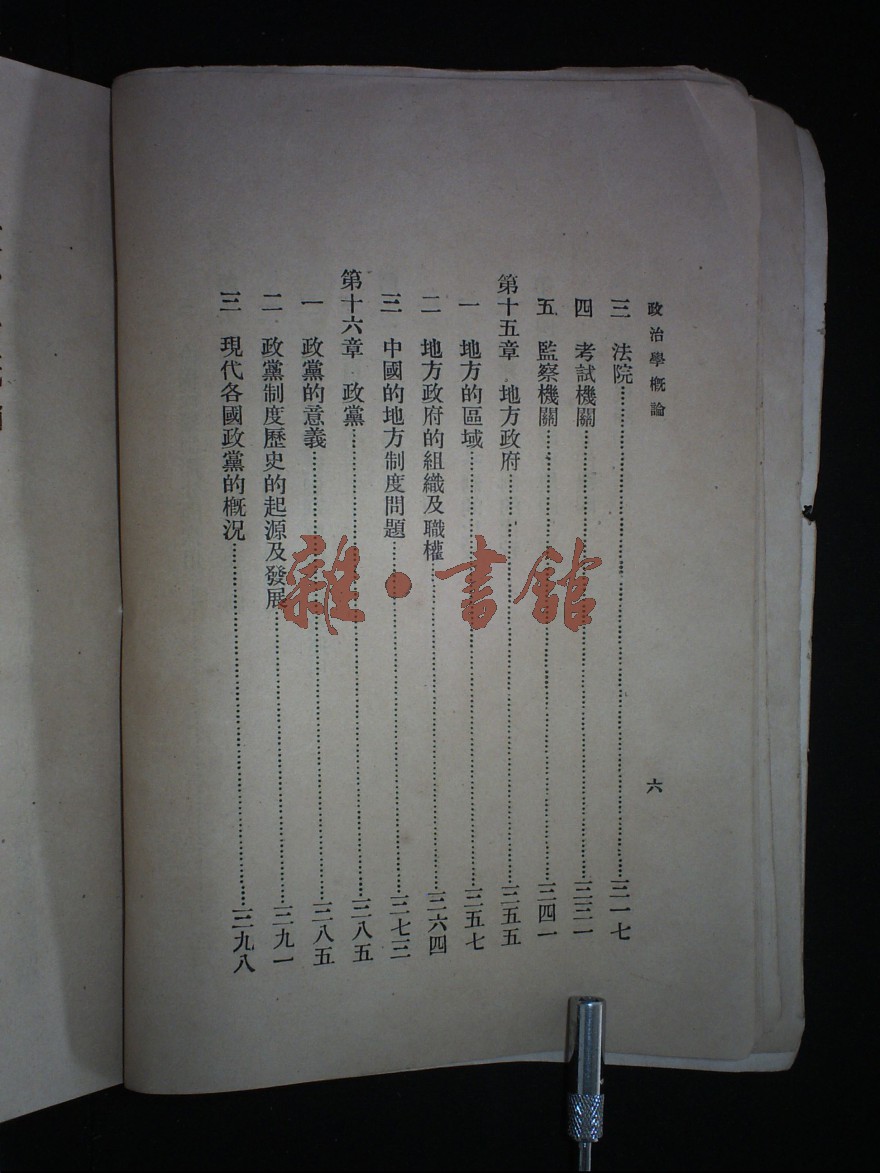 政治學概論
六
三 法院……三一七
四 考試機關……三三一
五 監察機關……三四一
第十五章 地方政府……三五五
一 地方的區域……三五七
二 地方政府的組織及職權……三六四
三 中國的地方制度問題……三七三
第十六章 政黨……三八五
一 政黨的意義……三八五
二 政黨制度歷史的起源及發展……三九一
三 現代各國政黨的概況……三九八
雜·書館